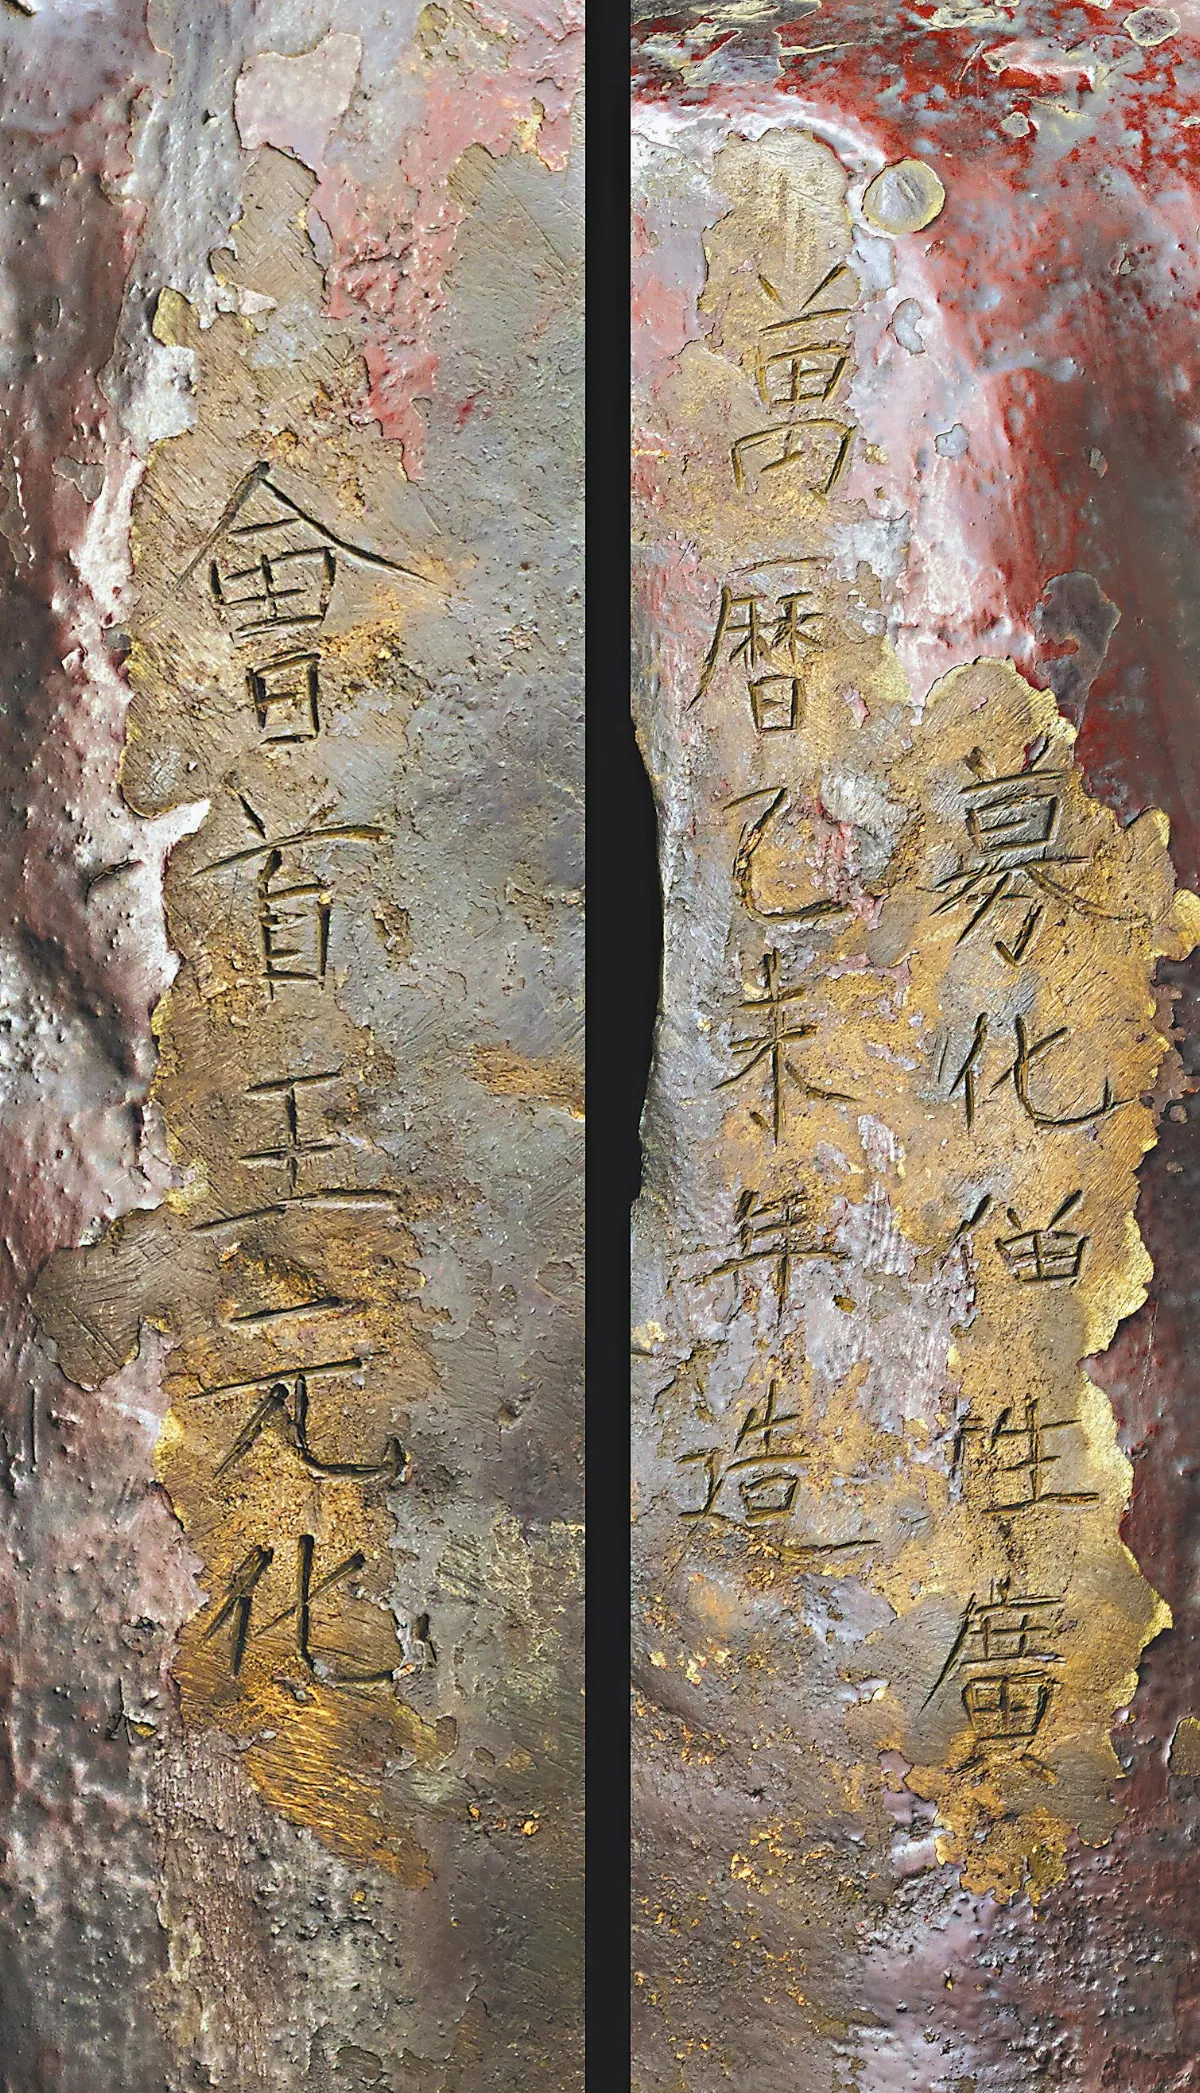 募化僧性廣
萬曆乙未年造
會首王元化